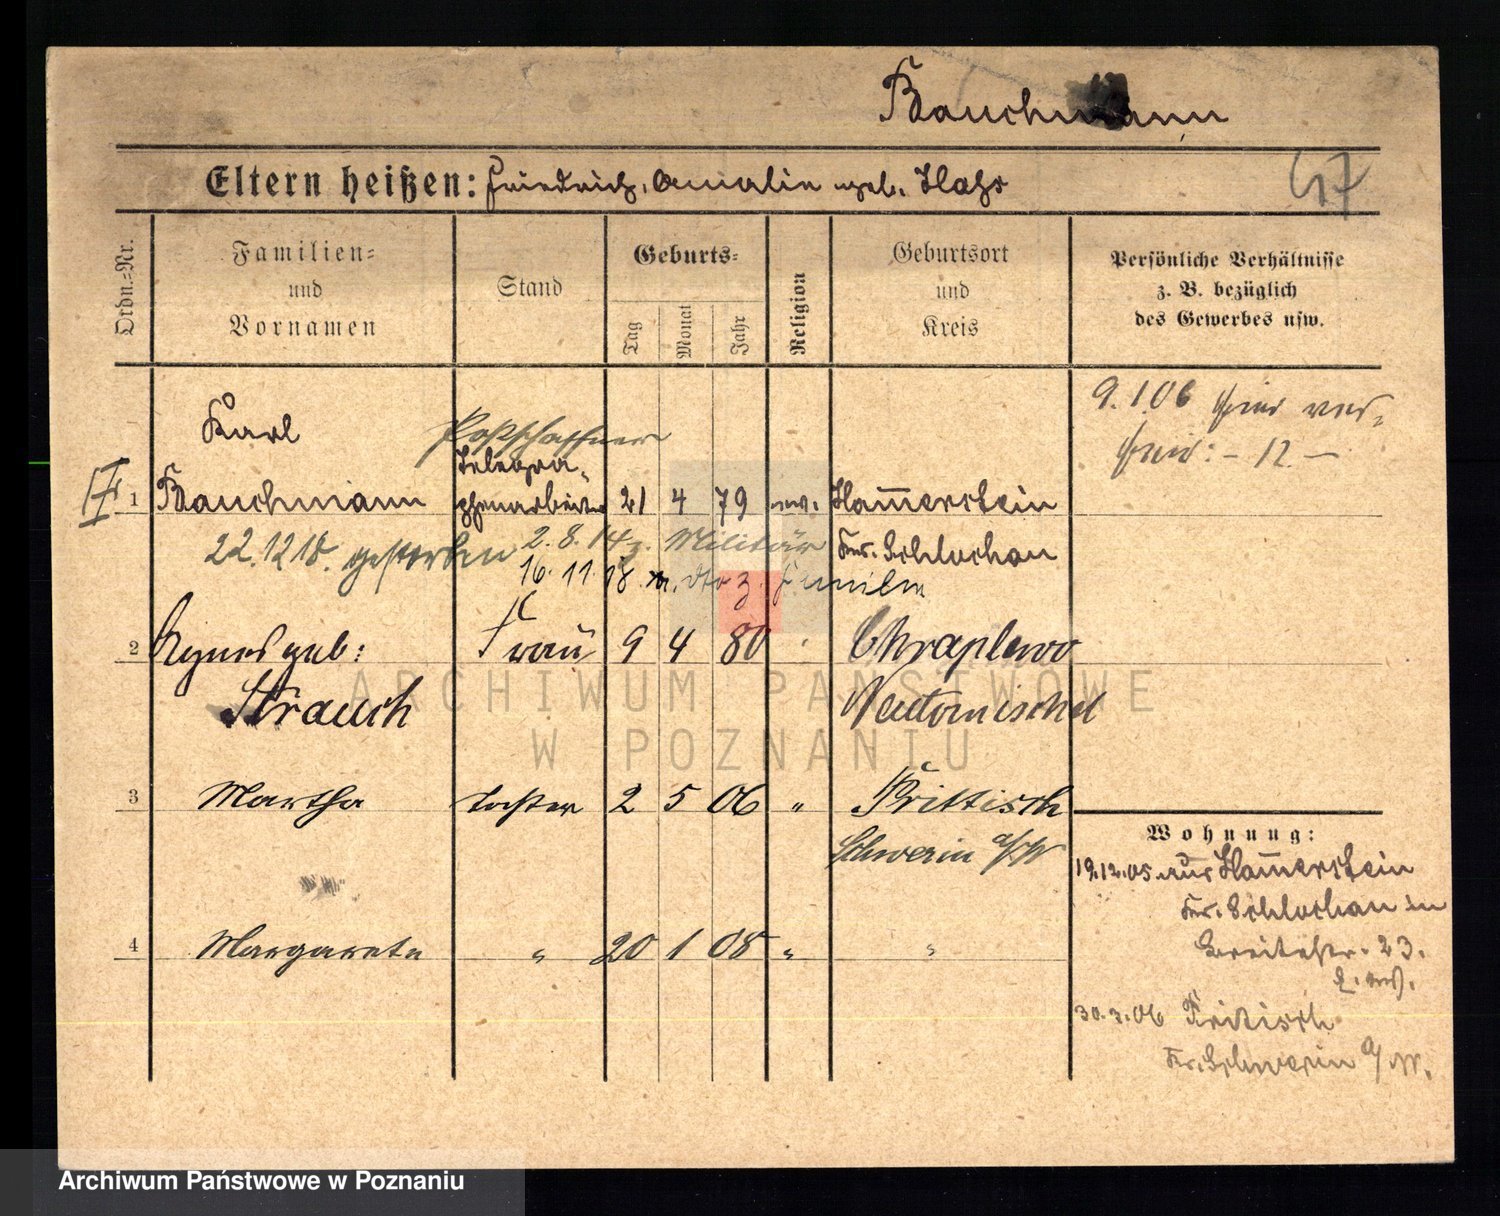 Bauchmann
Eltern heißen: Friedrich, Amalie geb. Hahs
47
Ordn.=Nr.
Familien=
und
Vornamen
Stand
Geburts=
Tag
Monat
Jahr
Religion
Geburtsort
und
Kreis
Persönliche Verhältnisse
z. B. bezüglich
des Gewerbes usw.
9.1.06 hier
12
Karl
Postschaffner
Telegra-
1 Bauchmann phenarbeiter 21 4 79 ev. Ham̅erstein
22.12.18. gestorben 2.8.14 z. Militär Kr. Schlochau
16.11.18 z. Familie
2 Agnes geb: Frau 9 4 80 Chraplewo
Strauch Neutomischel
3 Martha Tochter 2 5 06 " Prittisch
Schwerin a/W
4 Margarete " 20 1 08 " "
Wohnung:
19.12.05 aus Ham̅erstein
Kr. Schlochau in
Breitestr. 23.
30.3.06 Pritisch
Kr. Schwerin a/W.
ARCHIWUM PAŃSTWOWE
W POZNANIU
Archiwum Państwowe w Poznaniu